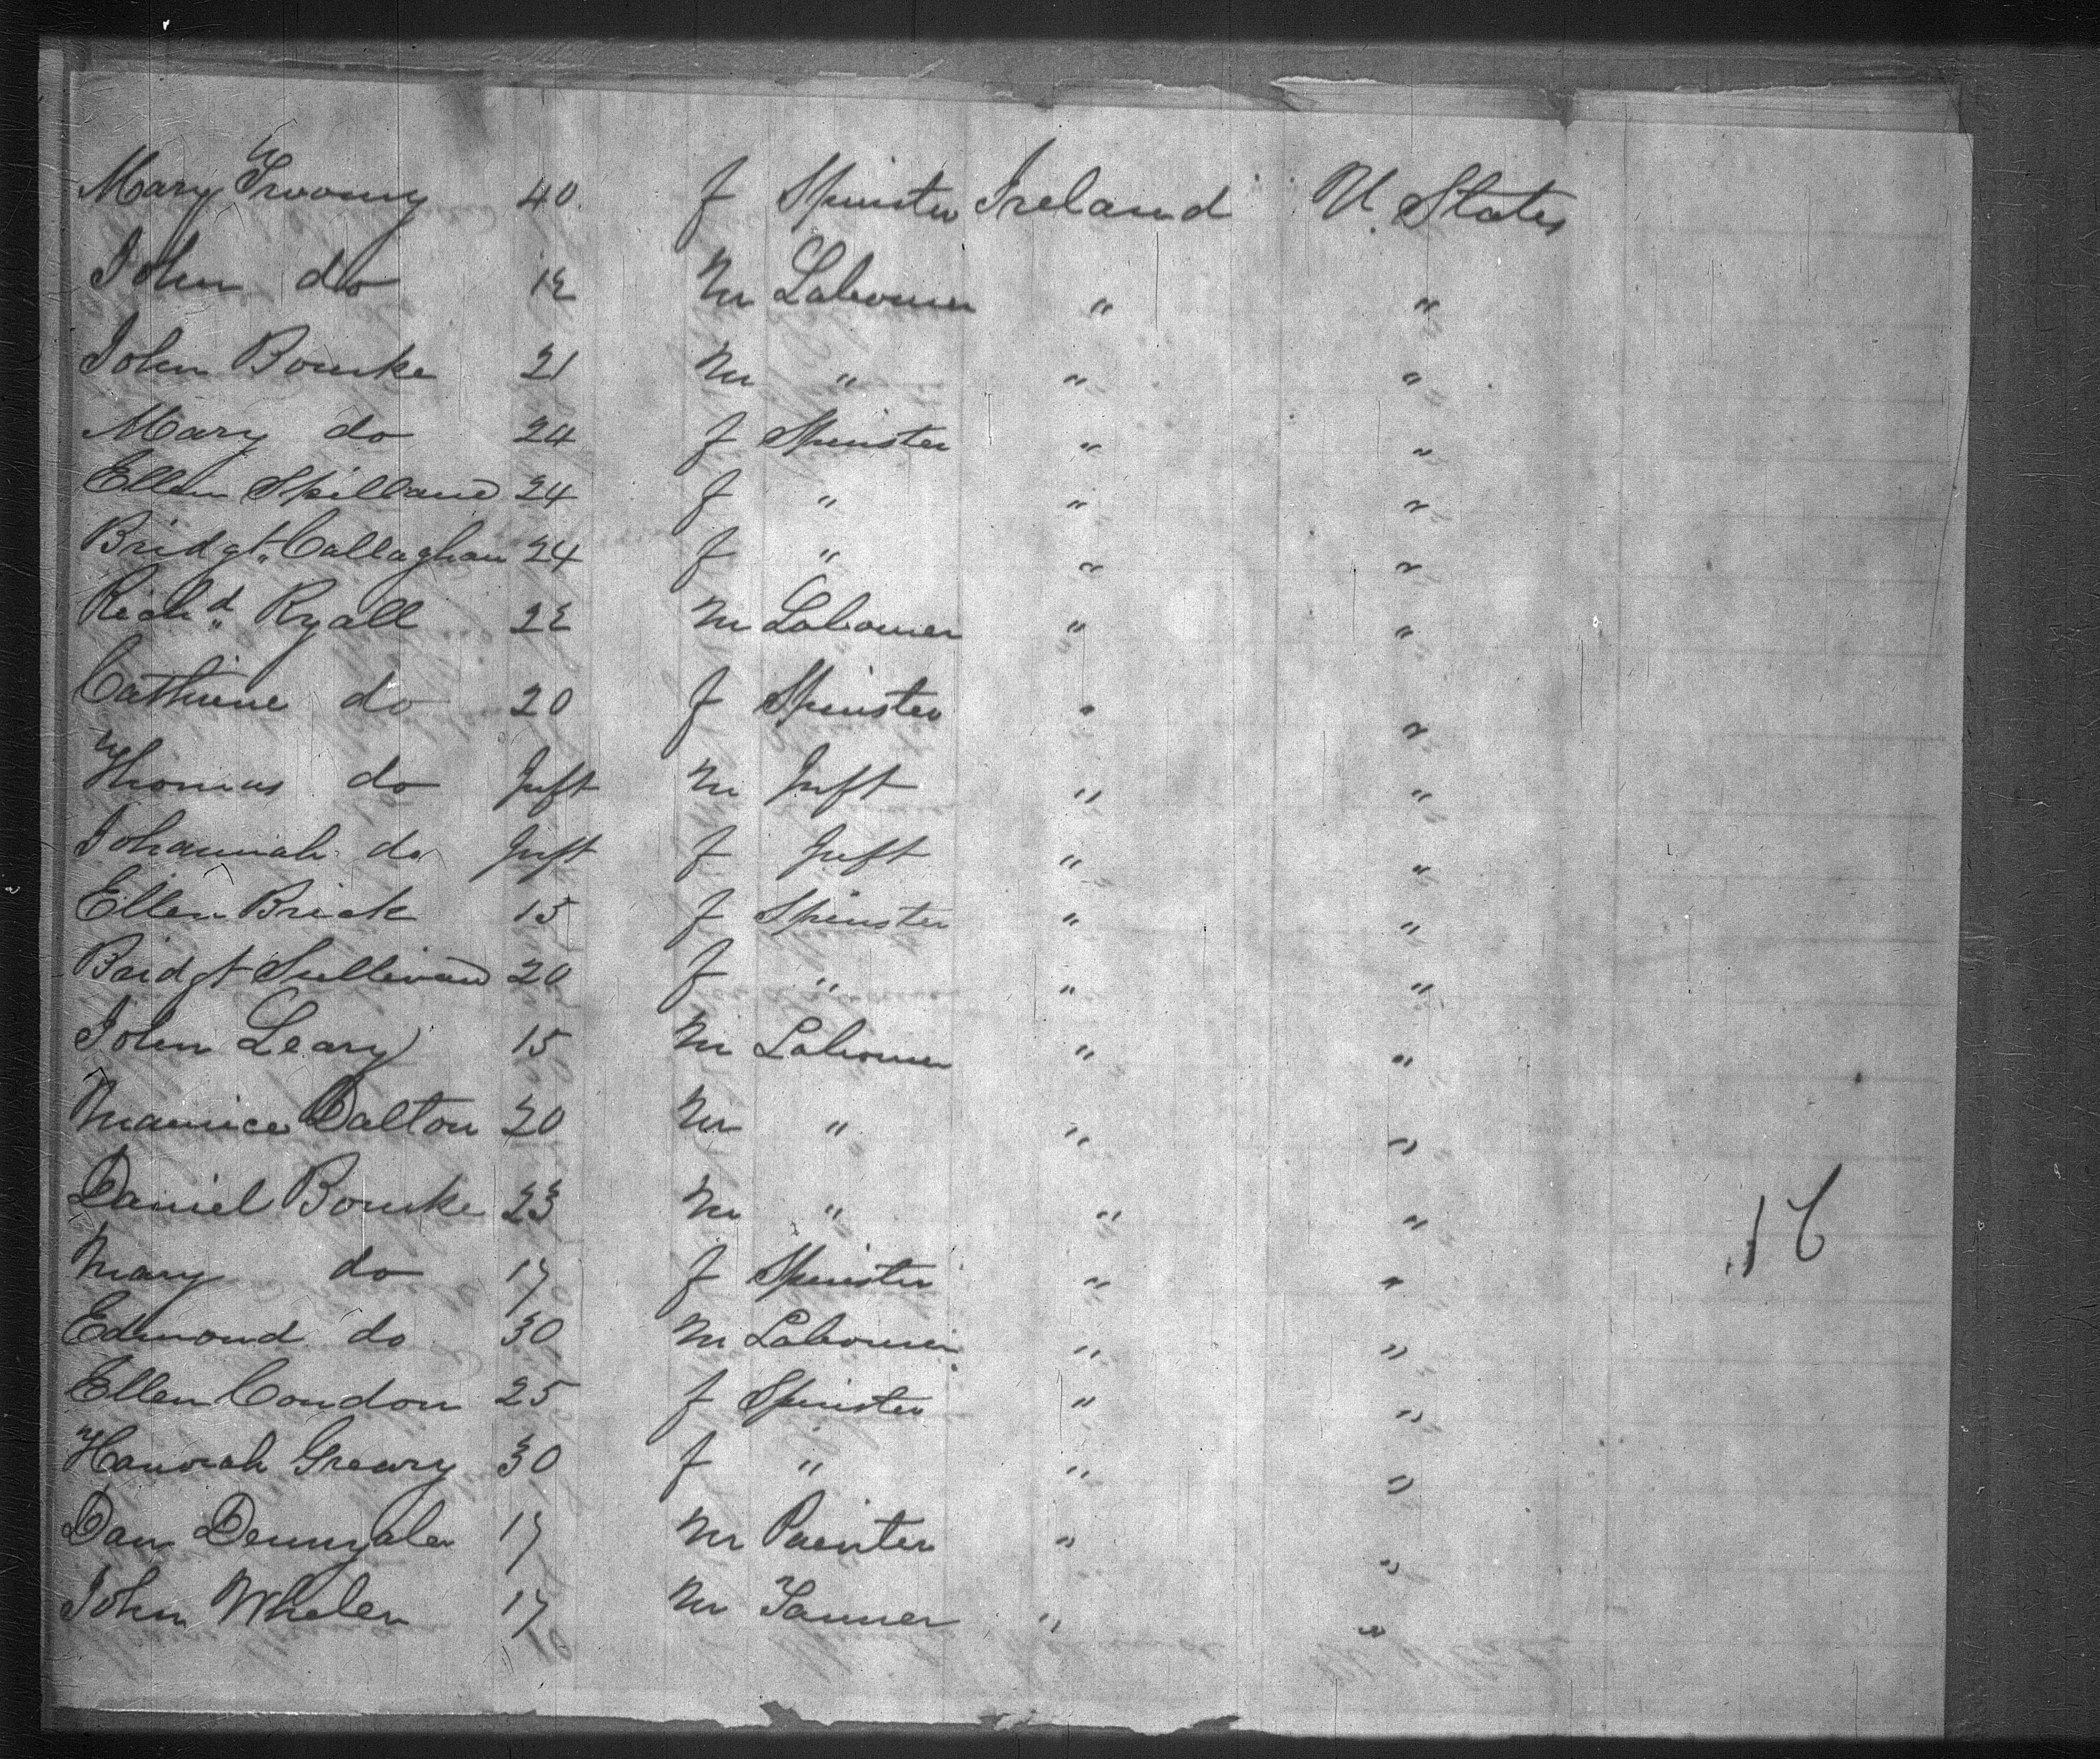 Mary Twomy 40 f Spinster Ireland U. States
John do 12 m Labourer " "
John Bourke 21 m " " "
Mary do 24 f Spinster " "
Ellen Spillane 24 f " " "
Bridgt. Callaghan 24 f " " "
Richd. Ryall 22 m Labourer " "
Cathrine do 20 f Spinster " "
Thomas do Inft m Inft " "
Johannah do Inft f Inft " "
Ellen Brick 15 f Spinster " "
Bridgt Sullivan 20 f " " "
John Leary 15 m Labourer " "
Maurice Dalton 20 m " " "
Daniel Bourke 23 m " " "
16
Mary do 17 f Spinster " "
Edmond do 30 m Labourer " "
Ellen Condon 25 f Spinster " "
Hanorah Greary 30 f " " "
Dan 17 m Painter " "
John Whelen 17 m Tanner " "